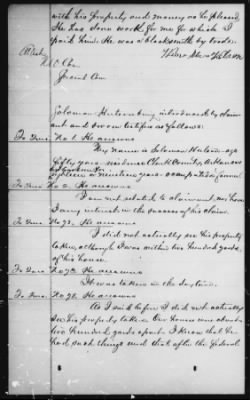 with his property and money as he pleased.
He has done work for me for which I
paid him. He was a blacksmith by trade.
Solomon introduced by claim-
ant and sworn testifies as follows:
To Inter. No 1. He answers
My name is Solomon age
fifty years residence Clark County, Arkansas
nineteen years occupation farmer
To Inter No 2. He answers
I am not related to claimant, nor have
I any interest in the success of his claim.
To Inter. No 72. He answers
I did not actually see his property
taken, although I was within two hundred yards
of his house.
To Inter No 73. He answers
It was taken in the daytime.
To Inter. No 78. He answers
As I said before I did not actually
see his property taken. Our house was about
two hundred yards apart. I know that he
had such things and that after the Federal